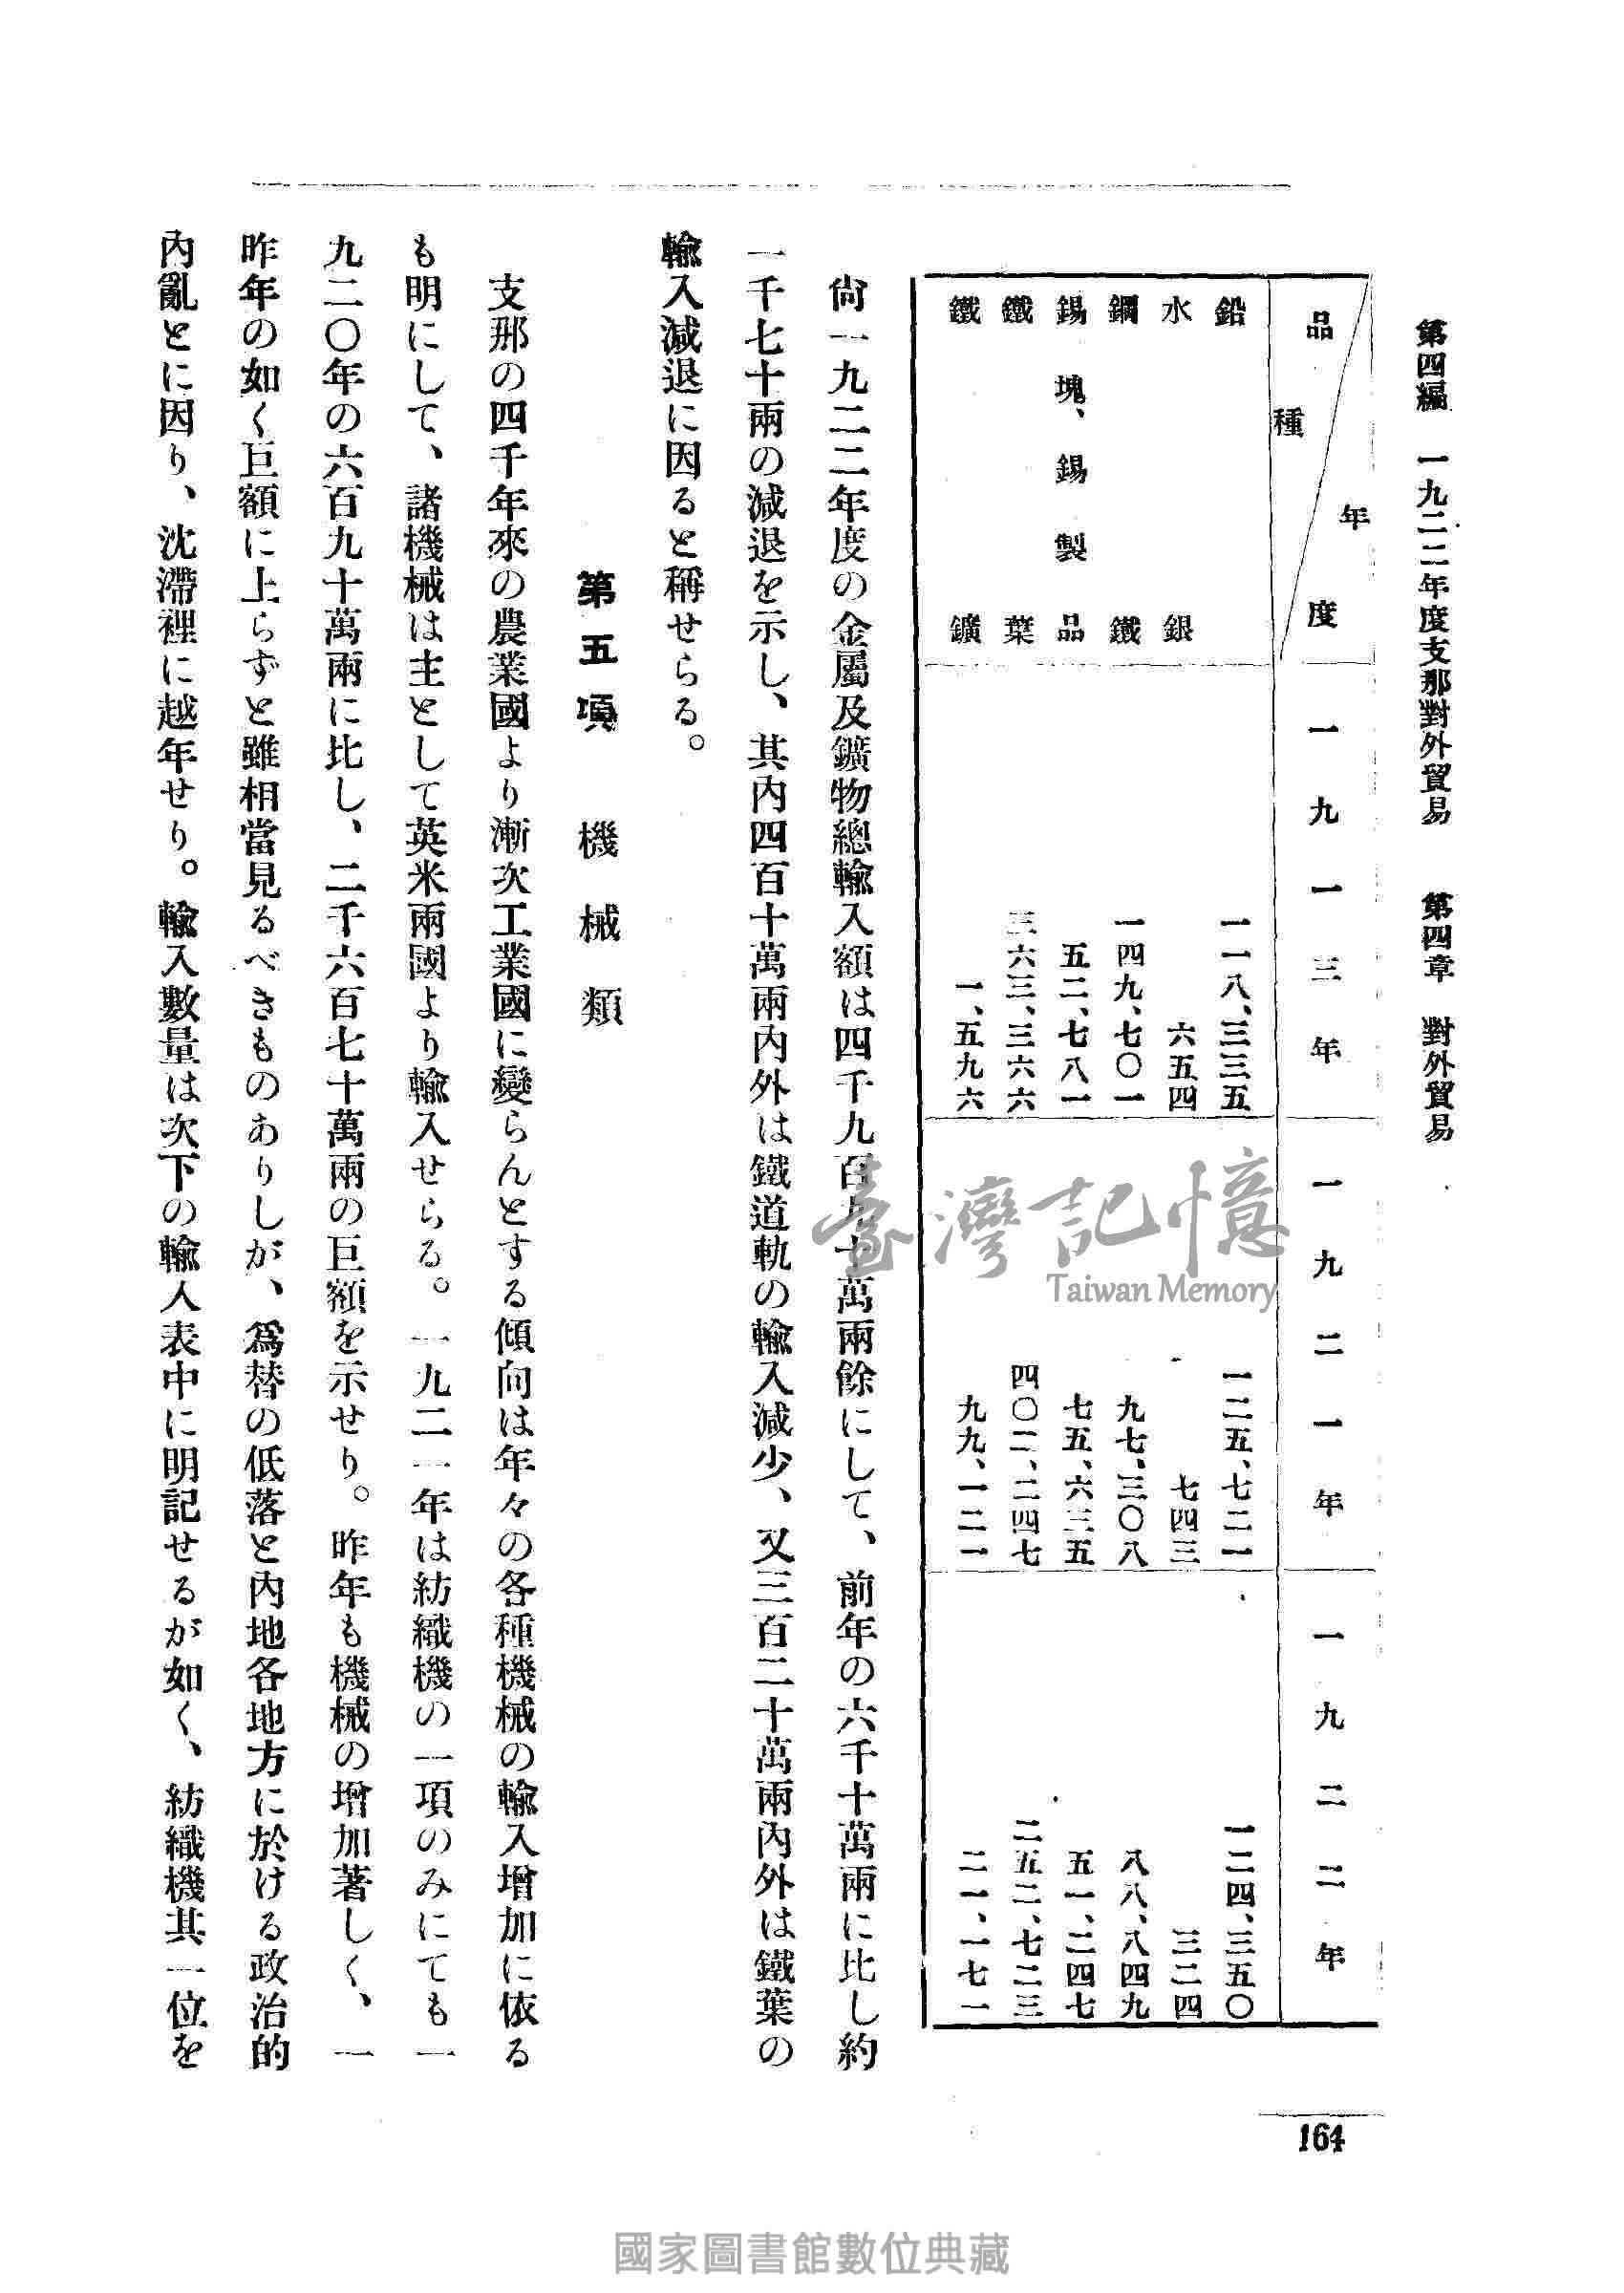 第四編　一九二二年度支那對外貿易　第四章　對外貿易
品種　年度　一九一三年　一九二一年　一九二二年
鉛　一一八、三三五　一二五、七二一　一二四、三五〇
水銀　六五四　七四三　三二四
鋼鐵　一四九、七〇一　九七、三〇八　八八、八四九
錫塊、錫製品　五二、七八一　七五、六三五　五一、二四七
鐵葉　三六三、三六六　四〇二、二四七　二五二、七二三
鐵鑛　一、五九六　九九、一二一　二一、一七一
尙一九二二年度の金屬及鑛物總輸入額は四千九百九十萬兩餘にして、前年の六千十萬兩に比し約
一千七十兩の減退を示し、其內四百十萬兩內外は鐵道軌の輸入減少、又三百二十萬兩內外は鐵葉の
輸入減退に因ると稱せらる。
第五項　機械類
支那の四千年來の農業國より漸次工業國に變らんとする傾向は年々の各種機械の輸入增加に依る
も明にして、諸機械は主として英米兩國より輸入せらる。一九二一年は紡織機の一項のみにても一
九二〇年の六百九十萬兩に比し、二千六百七十萬兩の巨額を示せり。昨年も機械の增加著しく、一
昨年の如く巨額に上らずと雖相當見るべきものありしが、爲替の低落と內地各地方に於ける政治的
內亂とに因り、沈滯裡に越年せり。輸入數量は次下の輸入表中に明記せるが如く、紡織機其一位を
164
臺灣記憶
Taiwan Memory
國家圖書館數位典藏